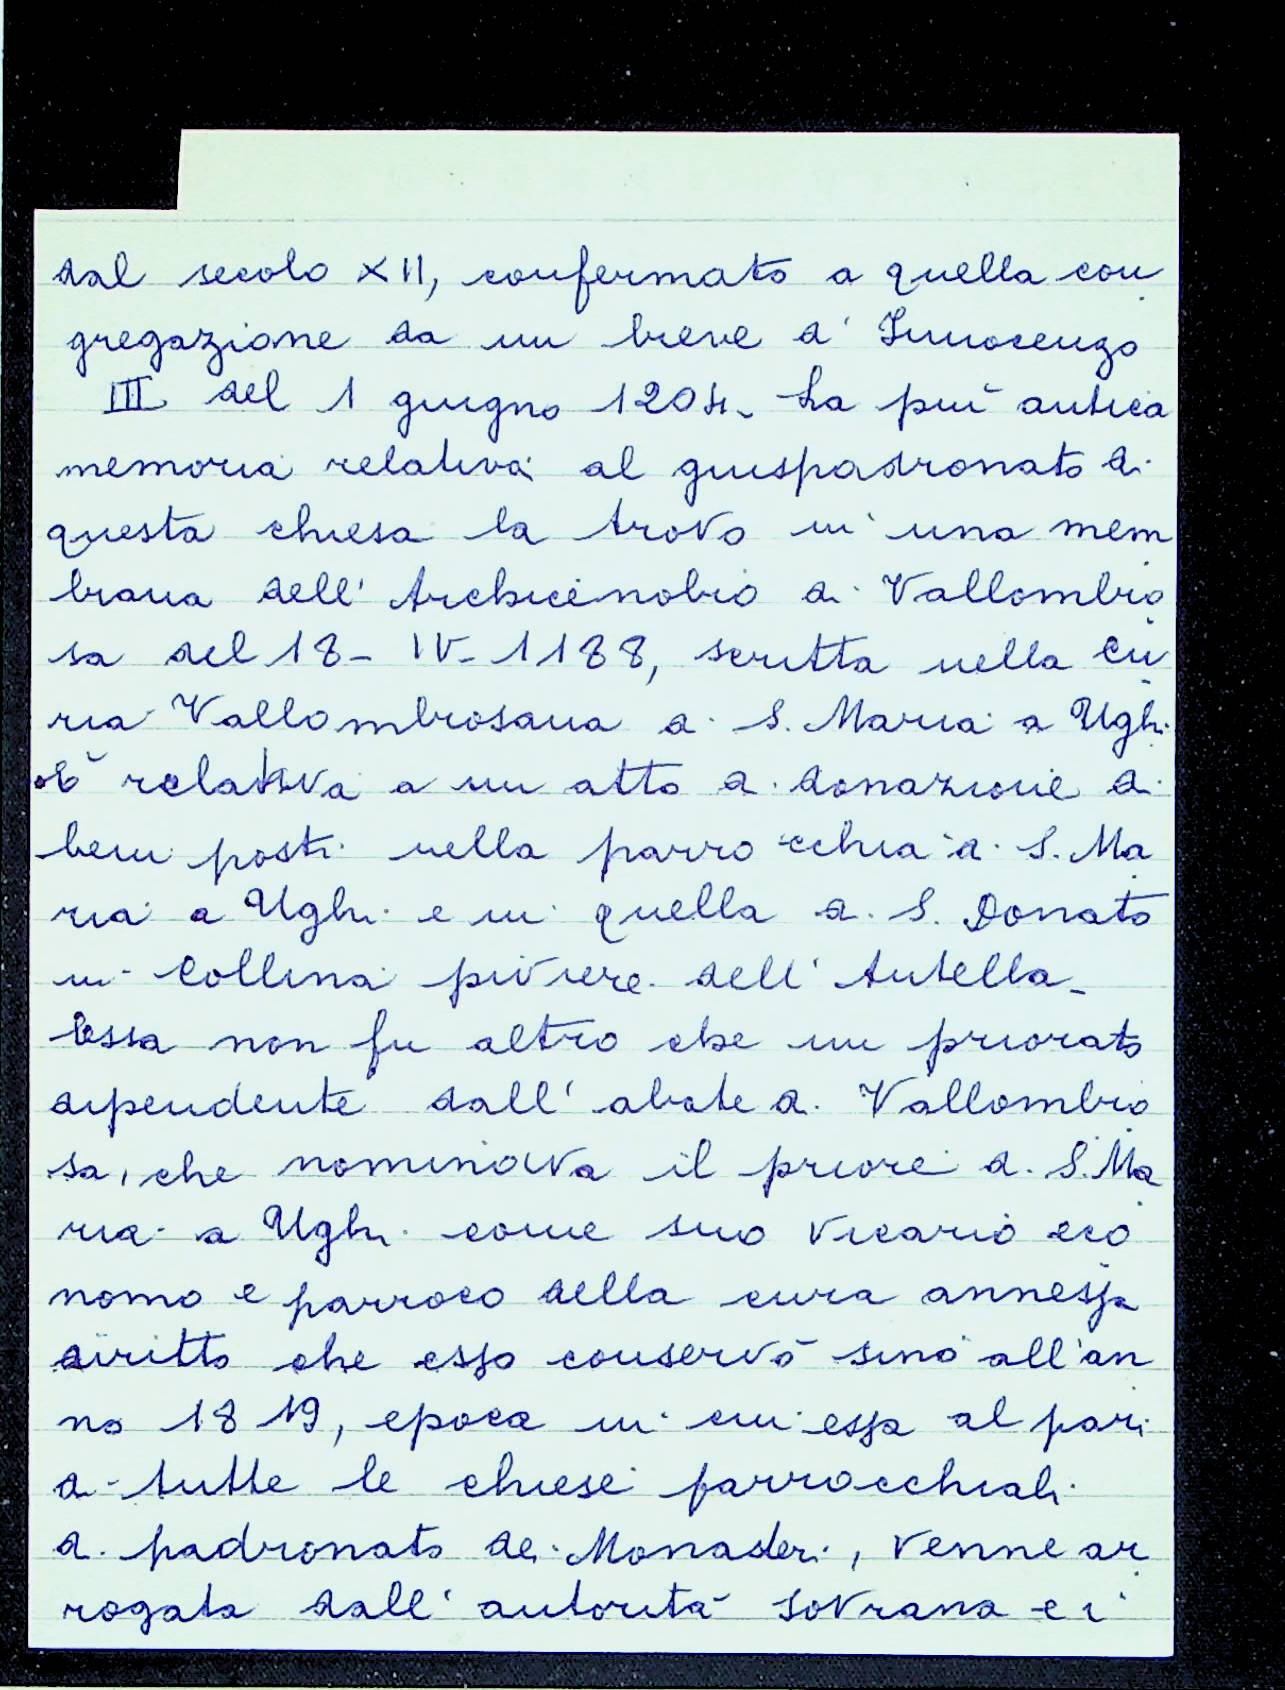 dal secolo XII, confermato a quella con
gregazione da un breve d' Innocenzo
III del 1 giugno 1204. La più antica
memoria relativa al giuspadronato di
questa chiesa la trovo in una mem
brana dell' Archicenobio di Vallombro
sa del 18 - IV - 1188, scritta nella Cu
ria Vallombrosana di S. Maria a Ughi
e relativa a un atto di donazione di
beni posti nella parrocchia di S. Ma
ria a Ughi e in quella di S. Donato
in Collina piviere dell' Antella -
Essa non fu altro che un priorato
dipendente dall' abate di Vallombro
sa, che nominava il priore di S. Ma
ria a Ughi come suo vicario eco
nomo e parroco della cura annessa
diritto che esso conservò sino all'an
no 1819, epoca in cui essa al pari
di tutte le chiese parrocchiali
di padronato dei Monasteri, venne ar
rogata dall' autorità sovrana e i